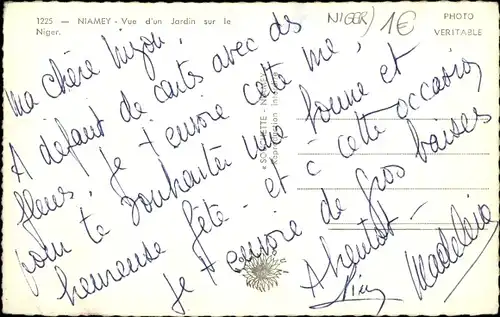 1225 — NIAMEY - Vue d'un Jardin sur le
Niger.
NIGER) 1€
PHOTO
VERITABLE
Ma chère
A défaut de cartes avec des
fleurs, je t'envoie cette
pour te souhaiter une bonne et
heureuse fête - et à cette occasion
je t'envoie de gros baisers
A bientôt -
Madeleine
NIAMEY
Reproduction interdite